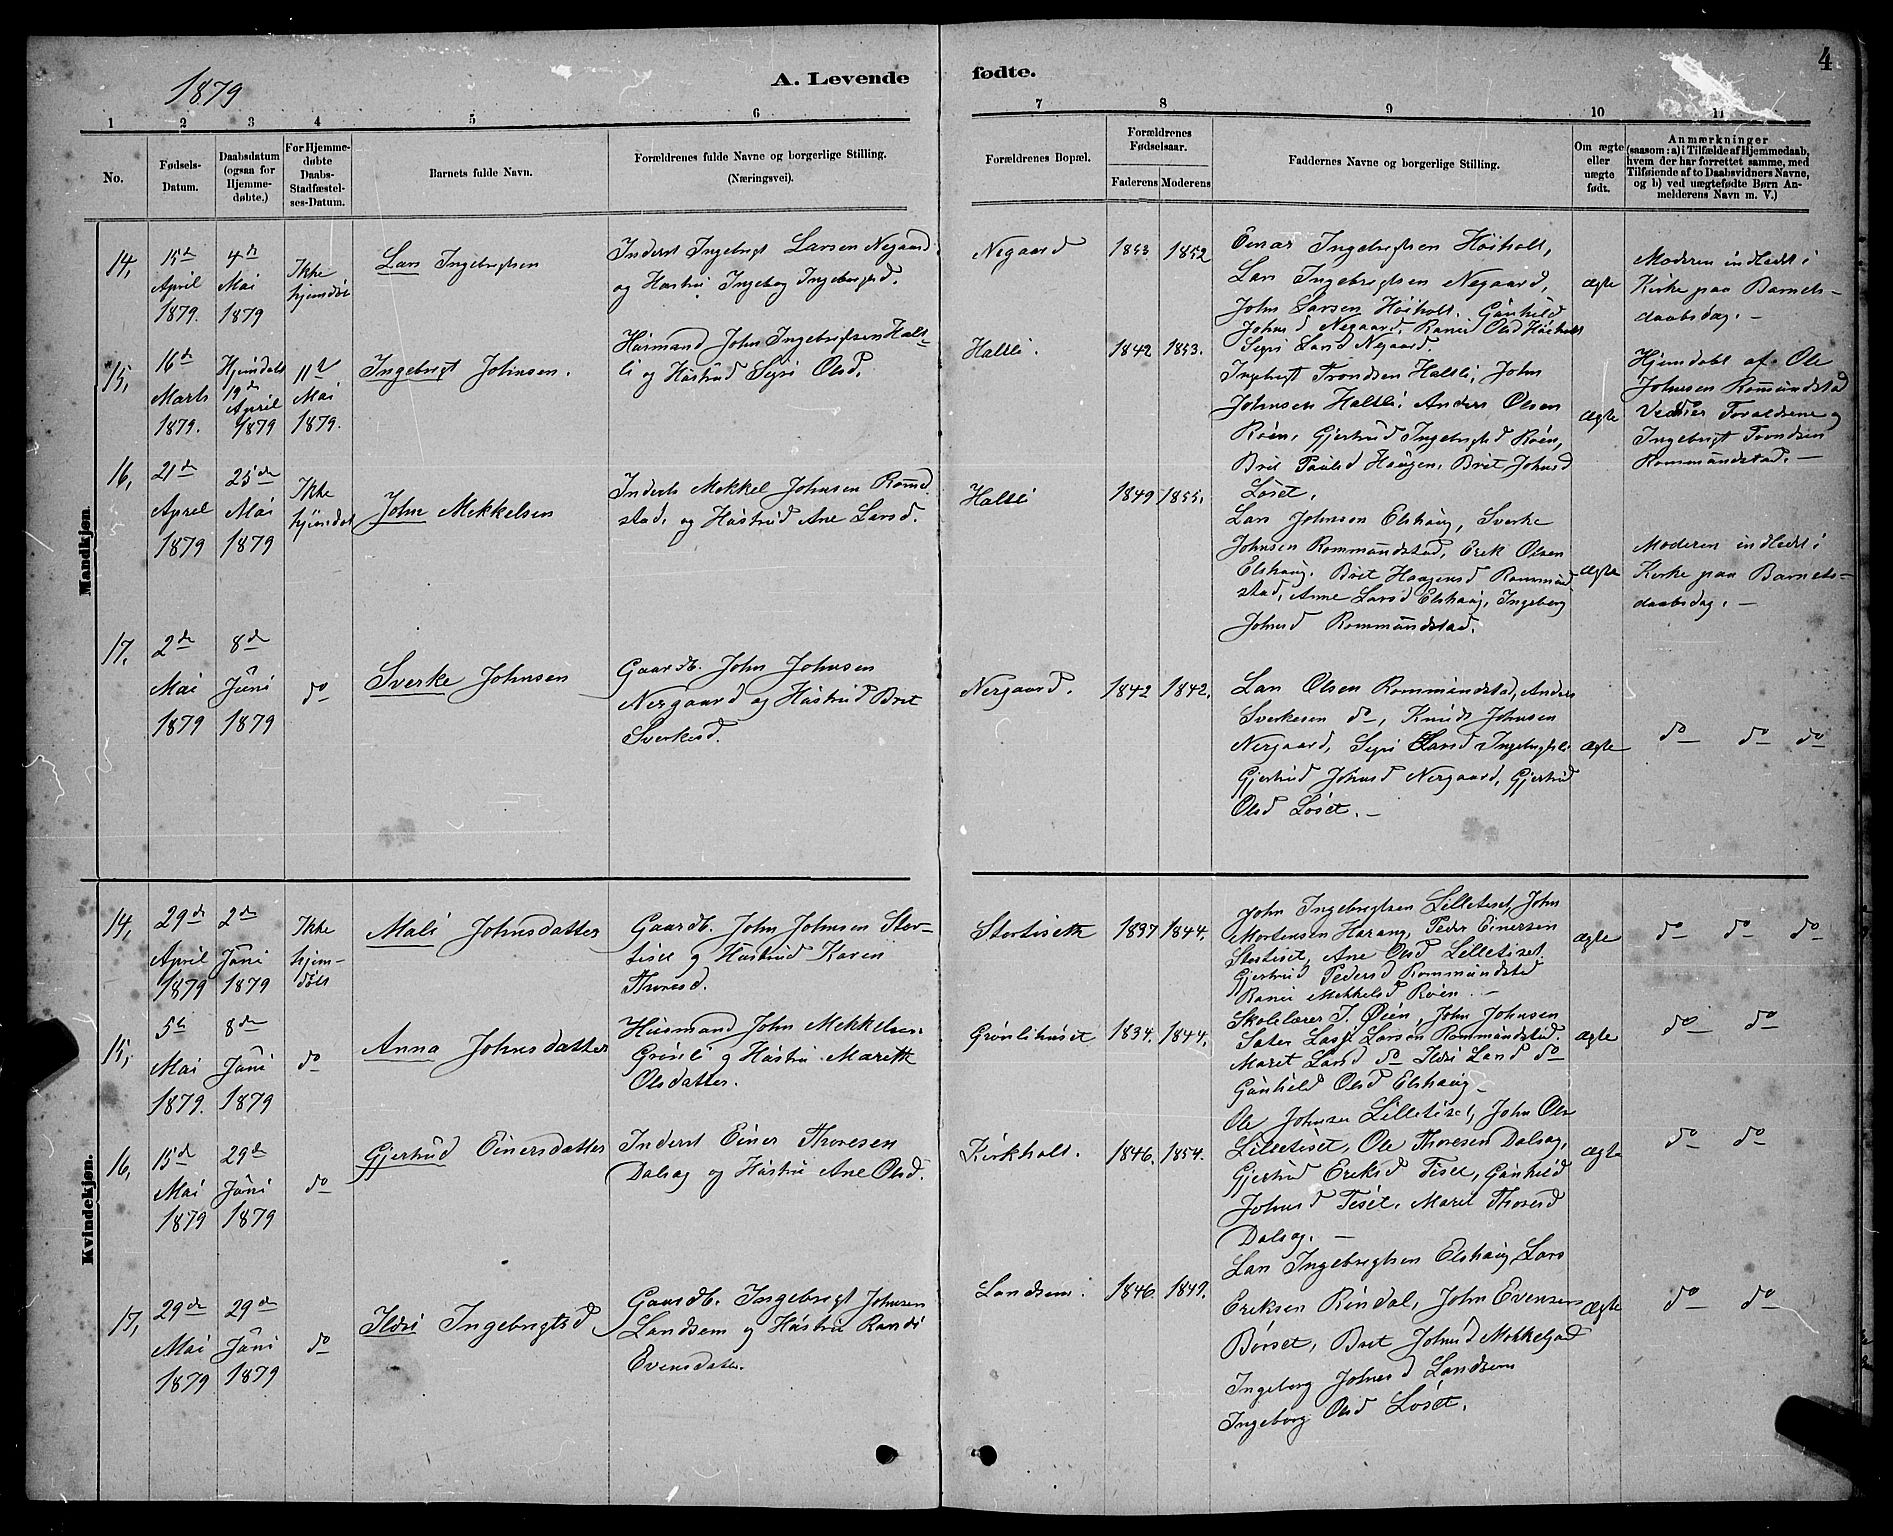 1879
A. Levende fødte.
4
1 2 3 4 5 6 7 8 9 10 11
No.
Fødsels-
Datum.
Daabsdatum
(ogsaa for
Hjemme-
døbte.)
For Hjemme-
døbte
Daabs-
Stadfæstel-
ses-Datum.
Barnets fulde Navn.
Forældrenes fulde Navne og borgerlige Stilling.
(Næringsvei).
Forældrenes Bopæl.
Forældrenes
Fødselsaar.
Faderens Moderens
Faddernes Navne og borgerlige Stilling.
Om ægte
eller
uægte
født.
Anmærkninger
(saasom: a) i Tilfælde af Hjemmedaab,
hvem der har forrettet samme, med
Tilføiende af to Daabsvidners Navne,
og b) ved uægtefødte Børn An-
melderens Navn m. V.)
Mandkjøn.
14,
15de
April
1879.
4de
Mai
1879
Ikke
hjemdøbt
Lars Ingebrigtsen
Inderst Ingebrigt Larsen Negaard
og Hustru Ingebog Ingebrigtsd.
Negaard
1853 1852
Einar Ingebrigtsen Höiholt,
Lars Ingebrigtsen Negaard,
John Larsen Höiholt. Gunhild
Johnsd Negaard, Ranei Olsd Höiholt
Sigri Larsd Negaard
ægte
Moderen indledet i
Kirke paa Barnets-
daabsdag. -
15,
16de
Marts
1879.
Hjemdøbt
19de
April
1879
11te
Mai
1879.
Ingebrigt Johnsen.
Husmand John Ingebrigtsen Halt-
li og Hustrud Sigri Olsd,
Haltli.
1842 1853.
Ingebrigt Trondsen Haltli, John
Johnsen Haltli, Anders Olsen
Roen, Gjertrud Ingebrigtsd Roen,
Brit Paulsd Haugen, Brit Johnsd
Löset.
ægte
Hjemdøbt af Ole
Johnsen Rommundstad
Vedner Forældrene og
Ingebrigt Trondsen
Rommundstad. -
16,
21de
April
1879
25de
Mai
1879
Ikke
hjemdøbt
John Mekkelsen
Inderst Mekkel Johnsen Romd-
stad, og Hustrud Ane Larsd.
Haltli
1849 1855.
Lars Johnsen Elshaug, Sverke
Johnsen Rommundstad, Erik Olsen
Elshaug. Brit Haagensd Rommund
stad, Anne Larsd Elshaug, Ingeborg
Johnsd Rommundstad.
ægte
Moderen indledet i
Kirke paa Barnets-
daabsdag. -
17.
2de
Mai
1879
8de
Juni
1879
do
Sverke Johnsen
Gaardb. John Johnsen
Nergaard og Hustrud Brit
Sverkesd.
Nergaard.
1842 1842.
Lars Olsen Rommundstad, Anders
Sverkesen do, Knud Johnsen
Nergaard, Sigri Larsd Ingebrigtsli
Gjertrud Johnsd Nergaard, Gjertrud
Olsd Löset. -
ægte
do do do
Kvindekjøn.
14,
29de
April
1879
2de
Juni
1879
Ikke
hjem-
døbt
Mali Johnsdatter
Gaardb. John Johnsen Stor-
tiset og Hustrud Karen
Thoresd.
Stortiseth
1837 1844.
John Ingebrigtsen Lilletiset, John
Mortensen Harang, Peder Einersen
Stortiset, Ane Olsd Lilletiset.
Gjertrud Pedersd Rommundstad
Ranei Mekkelsd Roen. -
ægte
do do do
15,
5te
Mai
1879.
8de
Juni
1879
do
Anna Johnsdatter
Husmand John Mekkelsen
Grönli og Hustru Marett
Olsdatter.
Grönlihuset
1834. 1844.
Skolelærer T. Øien, John Johnsen
Sæter Lasse Larsen Rommundstad.
Maret Larsd do Ildri Larsd do
Gunhild Olsd Elshaug -
ægte
do do
16,
15de
Mai
1879
29de
Juni
1879
do
Gjertrud Einersdatter
Inderst Einer Thoresen
Dalsag og Hustru Ane Olsd.
Kirkholt.
1846. 1854.
Ole Johnsen Lilletiset, John Olsen
Lilletiset, Ole Thoresen Dalsag,
Gjertrud Eriksd Tiset, Gunhild
Johnsd Tiset. Maret Thoresd
Dalsag. -
ægte
do do
17,
29de
Mai
1879
29de
Juni
1879
do
Ildri Ingebrigtsd
Gaardb. Ingebrigt Johnsen
Landsem og Hustru Randi
Evensdatter.
Landsem.
1846. 1849.
Lars Ingebrigtsen Elshaug, Lars
Eriksen Rindal, John Evensen
Börset, Brit Johnsd Mekkelgad
Ingeborg Johnsd Landsem
Ingeborg Olsd Löset.
ægte
do do